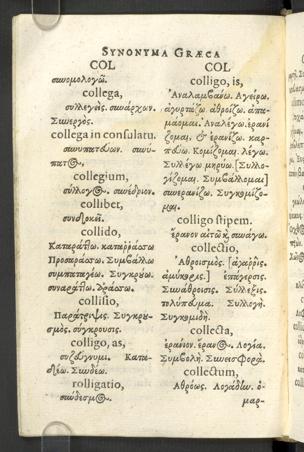 SYNONYMA GRÆCA
COL
συνομολογῶ.
collega,
συλλεγεὶς. συνάρχων.
Συνεργός.
collega in consulatu.
συνυπατεύων. συνύ-
πατος.
collegium,
σύλλογος. συνέδριον.
collibet,
συνδοκεῖ.
collido,
Καταράττω. καταρράσσω
Προσαράσσω. Συμβάλλω
συμπαταγέω. Συγκρούω.
συναράττω. δράσσω.
collisio,
Παράτριψις. Συγκρου-
σμὸς. σύγκρουσις.
colligo, as,
συζεύγνυμι. Κατα-
δέω. Συνδέω.
colligatio,
σύνδεσμος.
COL
colligo, is,
Ἀναλαμβάνω. Ἀγείρω.
ἀγυρτάζω. ἀθροίζω. ἀπα-
μάομαι. Ἀναλέγω. ἐρανί
ζομαι, & ἐρανίζω. καρ-
πεύω. Κομίζομαι. λέγω.
Συλλέγω μηρύω. [Συλλο-
γίζομαι. Συμβάλλομαι]
συνερανίζω. Συγκομίζο-
μαι.
colligo stipem.
ἔρανον αἰτῶ ἢ συνάγω.
collectio,
Ἀθροισμὸς. [ἀγαρρὶς.
ἀμύκηρις.] ἐπάγερσις.
Συνάθροισις. Σύλλεξις.
πολύπαμα. Συλλογή.
Συγκομιδή.
collecta,
ἐράνιον. ἔρανος. Λογία.
Συμβολή. Συνεισφορὰ.
collectum,
Ἀθρόως. Λογάδην. ὁ-
μαρ-